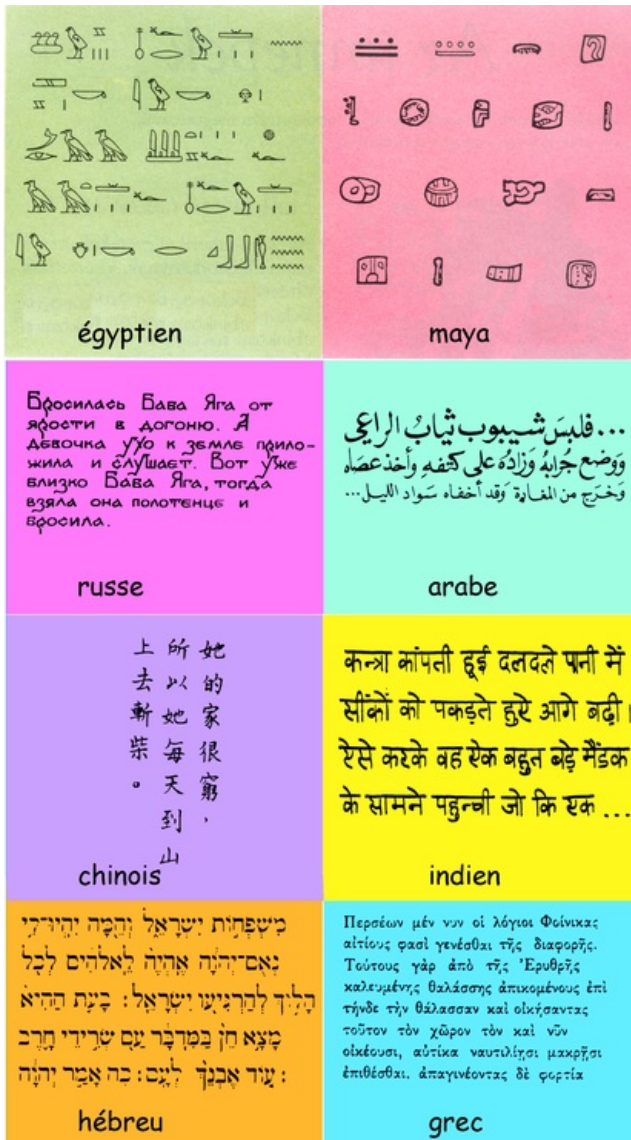 égyptien
maya
Бросилась Баба Яга от
ярости в догоню. А
девочка ухо к земле прило-
жила и слушает. Вот уже
близко Баба Яга, тогда
взяла она полотенце и
бросила.
russe
...فلبسَ شيبوب ثيابُ الراعي
وَوضع جُرابهُ وَزادُهُ على كتفهِ وأخذ عصَاه
وَخرَج من المغارة وَقد أخفاه سَواد الليل...
arabe
她的家很窮，
所以她每天到山
上去斬柴。
chinois
कन्त्रा कांपती हुई दलदले पानी में
सींकों को पकड़ते हुऐ आगे बढ़ी।
ऐसे करके वह ऐक बहुत बड़े मेंडक
के सामने पहुन्ची जो कि एक ...
indien
מִשְׁפְּחוֹת יִשְׂרָאֵל וְהֵמָּה יִהְיוּ־לִי
נְאֻם־יְהוָה אֶהְיֶה לֵאלֹהִים לְכֹל
הָלוֹךְ לְהַרְגִּיעוֹ יִשְׂרָאֵל׃ בָּעֵת הַהִיא
מָצָא חֵן בַּמִּדְבָּר עַם שְׂרִידֵי חָרֶב
עוֹד אֶבְנֵךְ לְעָם׃ כֹּה אָמַר יְהוָה׃
hébreu
Περσέων μέν νυν οἱ λόγιοι Φοίνικας
αἰτίους φασὶ γενέσθαι τῆς διαφορῆς.
Τούτους γὰρ ἀπὸ τῆς Ἐρυθρῆς
καλευμένης θαλάσσης ἀπικομένους ἐπὶ
τήνδε τὴν θάλασσαν καὶ οἰκήσαντας
τοῦτον τὸν χῶρον τὸν καὶ νῦν
οἰκέουσι, αὐτίκα ναυτιλίῃσι μακρῇσι
ἐπιθέσθαι, ἀπαγινέοντας δὲ φορτία
grec